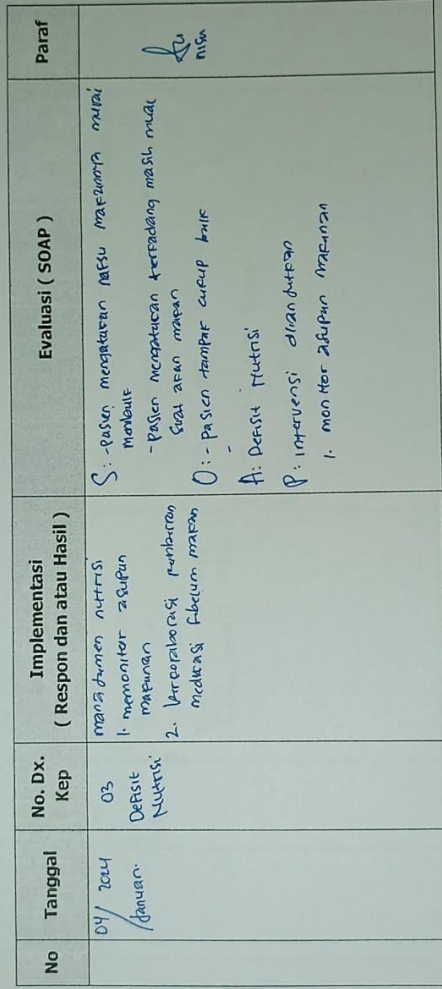 No
Tanggal
No. Dx.
Kep
Implementasi
( Respon dan atau Hasil )
Evaluasi ( SOAP )
Paraf
04/ 2024
Januari.
03
Defisit
Nutrisi
manajemen nutrisi
1. memonitor asupan
makanan
2. berkolaborasi pemberian
medikasi sebelum makan
S: -Pasien mengatakan nafsu makannya mulai
membaik
- Pasien mengatakan terkadang masih mual
saat akan makan
O: - Pasien tampak cukup baik
-
A: Defisit Nutrisi
P: intervensi dilanjutkan
1. monitor asupan makanan
nisa